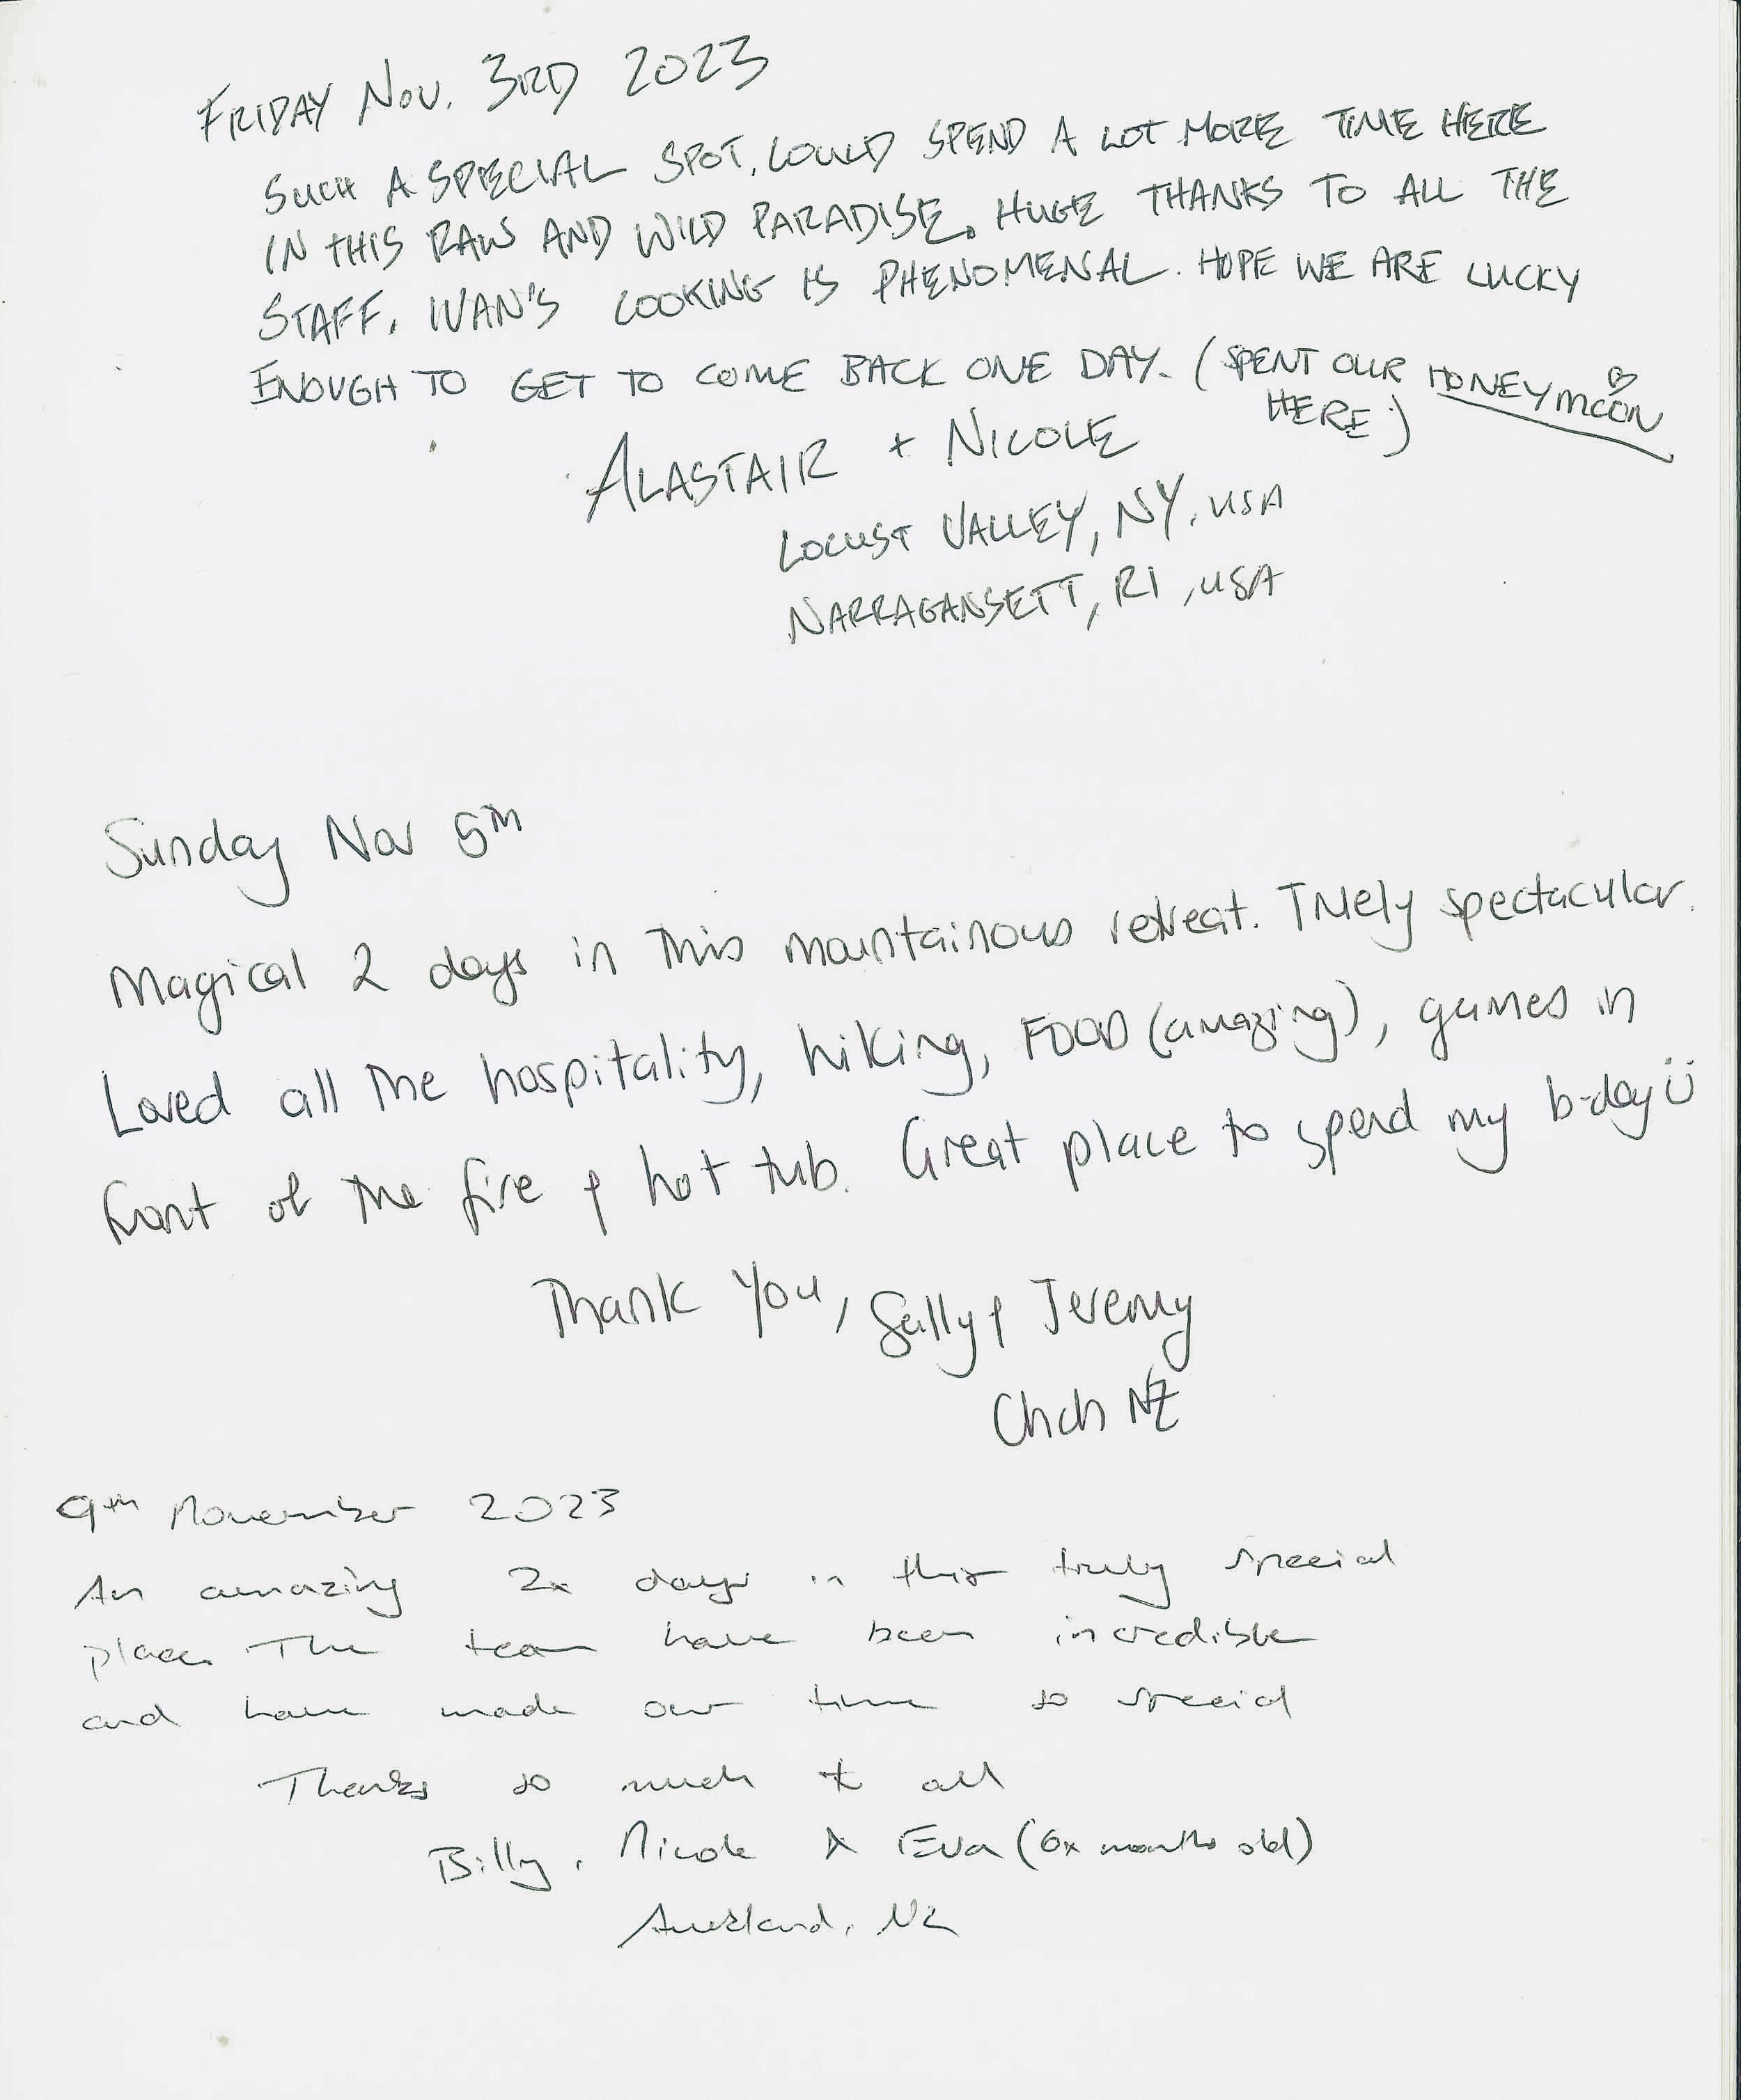 FRIDAY NOV. 3RD 2023
SUCH A SPECIAL SPOT, COULD SPEND A LOT MORE TIME HERE
IN THIS RAW AND WILD PARADISE. HUGE THANKS TO ALL THE
STAFF, IVAN'S COOKING IS PHENOMENAL. HOPE WE ARE LUCKY
ENOUGH TO GET TO COME BACK ONE DAY. (SPENT OUR HONEYMOON
HERE)
ALASTAIR + NICOLE
LOCUST VALLEY, NY, USA
NARRAGANSETT, RI, USA
Sunday Nov 5th
Magical 2 days in this mountainous retreat. Truely spectacular.
Loved all the hospitality, hiking, FOOD (amazing), games in
front of the fire & hot tub. Great place to spend my b-day ü
Thank You, Sally & Jeremy
Chch NZ
9th November 2023
An amazing 2x days in this truly special
place. The team have been incredible
and have made our time so special
Thanks so much to all
Billy, Nicole & Eva (6x months old)
Auckland, NZ